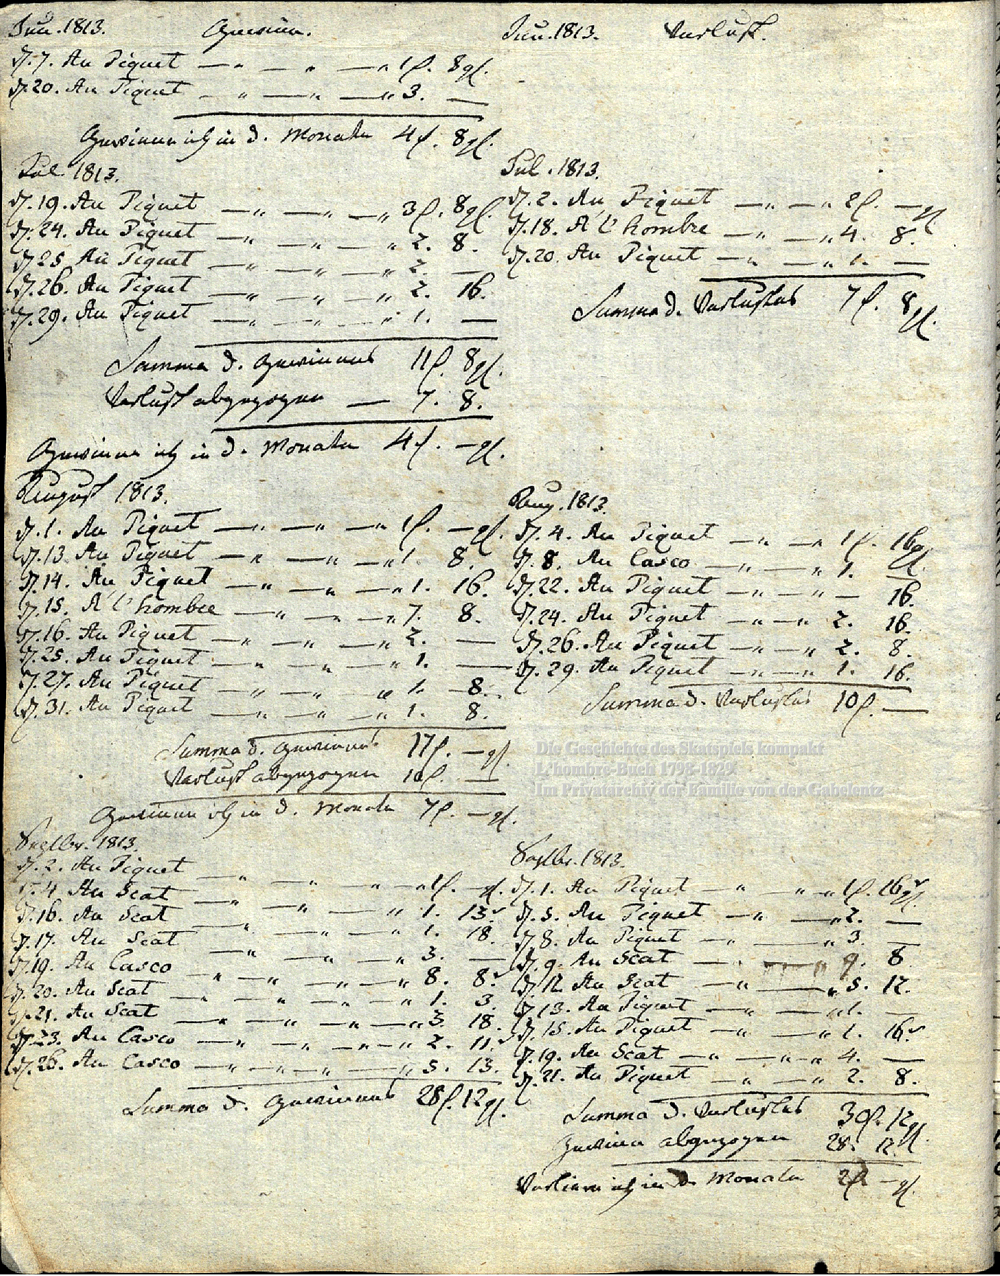 Jun. 1813. Gewinn.
D. 7. Au Piquet — " — " — " 1 f. 8 gl.
D. 20. Au Piquet — " — " — " 3. —
Gewinne ich in d. Monate 4 f. 8 gl.
Jul. 1813.
D. 19. Au Piquet — " — " — " 3 f. 8 gl.
D. 24. Au Piquet — " — " — " 2. 8.
D. 25. Au Piquet — " — " — " 2. —
D. 26. Au Piquet — " — " — " 2. 16.
D. 29. Au Piquet — " — " — " 1. —
Summa d. Gewinnes 11 f. 8 gl.
Verlust abgezogen — 7. 8.
Gewinne ich in d. Monate 4 f. — gl.
August 1813.
D. 1. Au Piquet — " — " — " 1 f. — gl.
D. 13. Au Piquet — " — " — " 1. 8.
D. 14. Au Piquet — " — " — " 1. 16.
D. 15. A l'hombre — " — " — " 7. 8.
D. 16. Au Piquet — " — " — " 2. —
D. 25. Au Piquet — " — " — " 1. —
D. 27. Au Piquet — " — " — " 1. 8.
D. 31. Au Piquet — " — " — " 1. 8.
Summa d. Gewinnes 17 f. — gl.
Verlust abgezogen 10 f. —
Gewinne ich in d. Monate 7 f. — gl.
Septbr. 1813.
D. 2. Au Piquet — " — " — " 1 f. — gl.
D. 4. Au Scat — " — " — " 1. 13.
D. 16. Au Scat — " — " — " 1. 18.
D. 17. Au Scat — " — " — " 3. —
D. 19. Au Casco — " — " — " 8. 8.
D. 20. Au Scat — " — " — " 1. 3.
D. 21. Au Scat — " — " — " 3. 18.
D. 23. Au Casco — " — " — " 2. 11.
D. 26. Au Casco — " — " — " 5. 13.
Summa d. Gewinnes 28 f. 12 gl.
Jun. 1813. Verlust.
Jul. 1813.
D. 2. Au Piquet — " — " 2 f. — gl.
D. 18. A l'hombre — " — " 4. 8.
D. 20. Au Piquet — " — " 1. —
Summa d. Verlustes 7 f. 8 gl.
Aug. 1813.
D. 4. Au Piquet — " — " 1 f. 16 gl.
D. 8. Au Casco — " — " 1. —
D. 22. Au Piquet — " — " — 16.
D. 24. Au Piquet — " — " 2. 16.
D. 26. Au Piquet — " — " 2. 8.
D. 29. Au Piquet — " — " 1. 16.
Summa d. Verlustes 10 f. —
Die Geschichte des Skatspiels kompakt
L'hombre-Buch 1798-1829
Im Privatarchiv der Familie von der Gabelentz
Septbr. 1813.
D. 1. Au Piquet — " — " 1 f. 16 gl.
D. 5. Au Piquet — " — " 2. —
D. 8. Au Piquet — " — " 3. —
D. 9. Au Scat — " — " 9. 8
D. 12. Au Scat — " — " 5. 12.
D. 13. Au Piquet — " — " 1. —
D. 15. Au Piquet — " — " 1. 16.
D. 19. Au Scat — " — " 4. —
D. 21. Au Piquet — " — " 2. 8.
Summa d. Verlustes 30 f. 12 gl.
Gewinn abgezogen 28. 12.
Verliere ich in d. Monate 2 f. — gl.